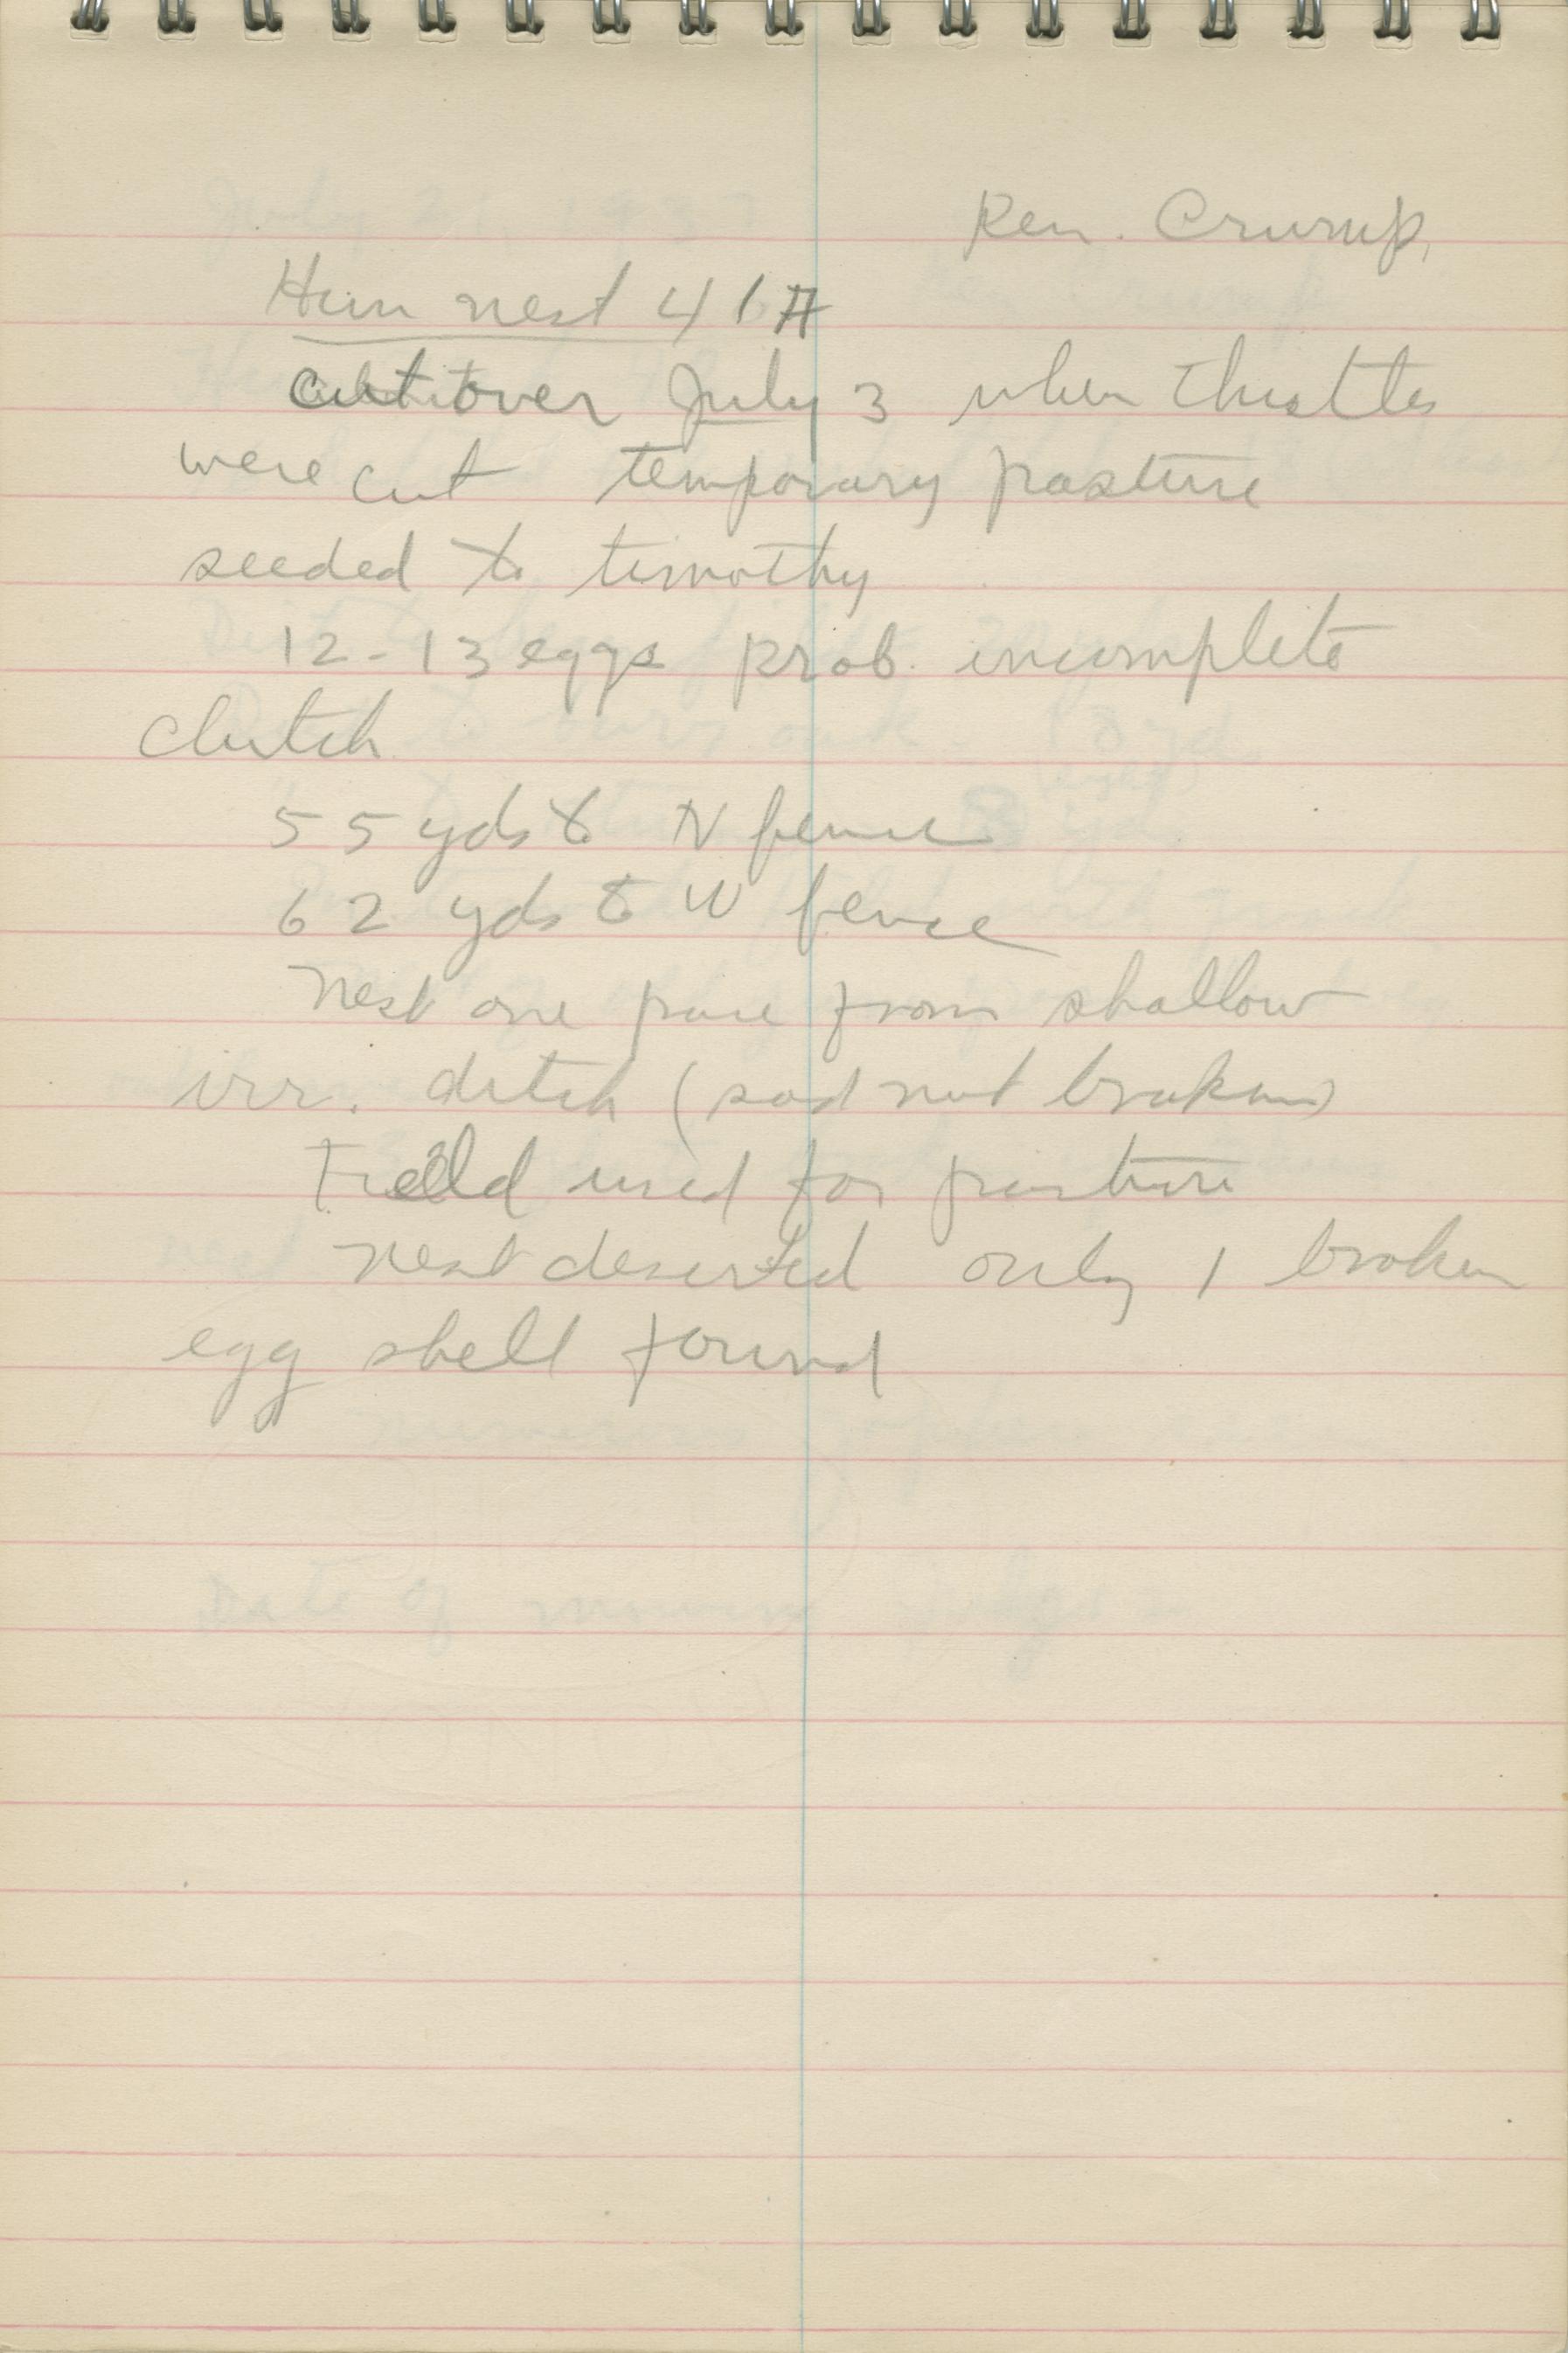 Ken. Crump,
Hun nest 41A
Cut over July 3 when thistles
were cut temporary pasture
seeded to timothy
12-13 eggs prob. incomplete
clutch
55 yds to N fence
62 yds to W fence
Nest one pace from shallow
irr. ditch (sod not broken)
Field used for pasture
Nest deserted only 1 broken
egg shell found